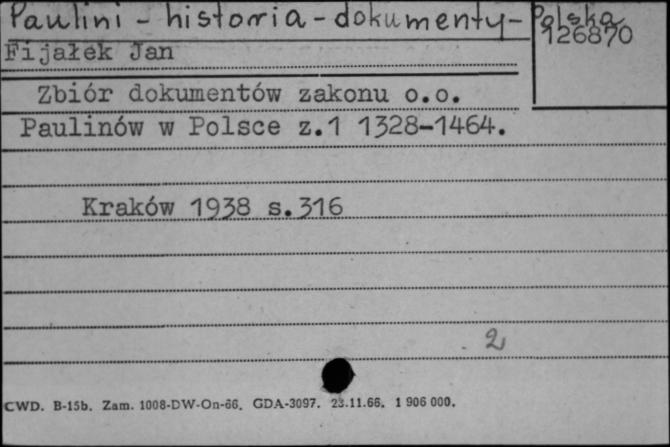 Paulini - historia - dokumenty - Polska
126870
Fijałek Jan
Zbiór dokumentów zakonu o.o.
Paulinów w Polsce z.1 1328-1464.
Kraków 1938 s.316
2
CWD. B-15b. Zam. 1008-DW-On-66. GDA-3097. 23.11.66. 1 906 000.